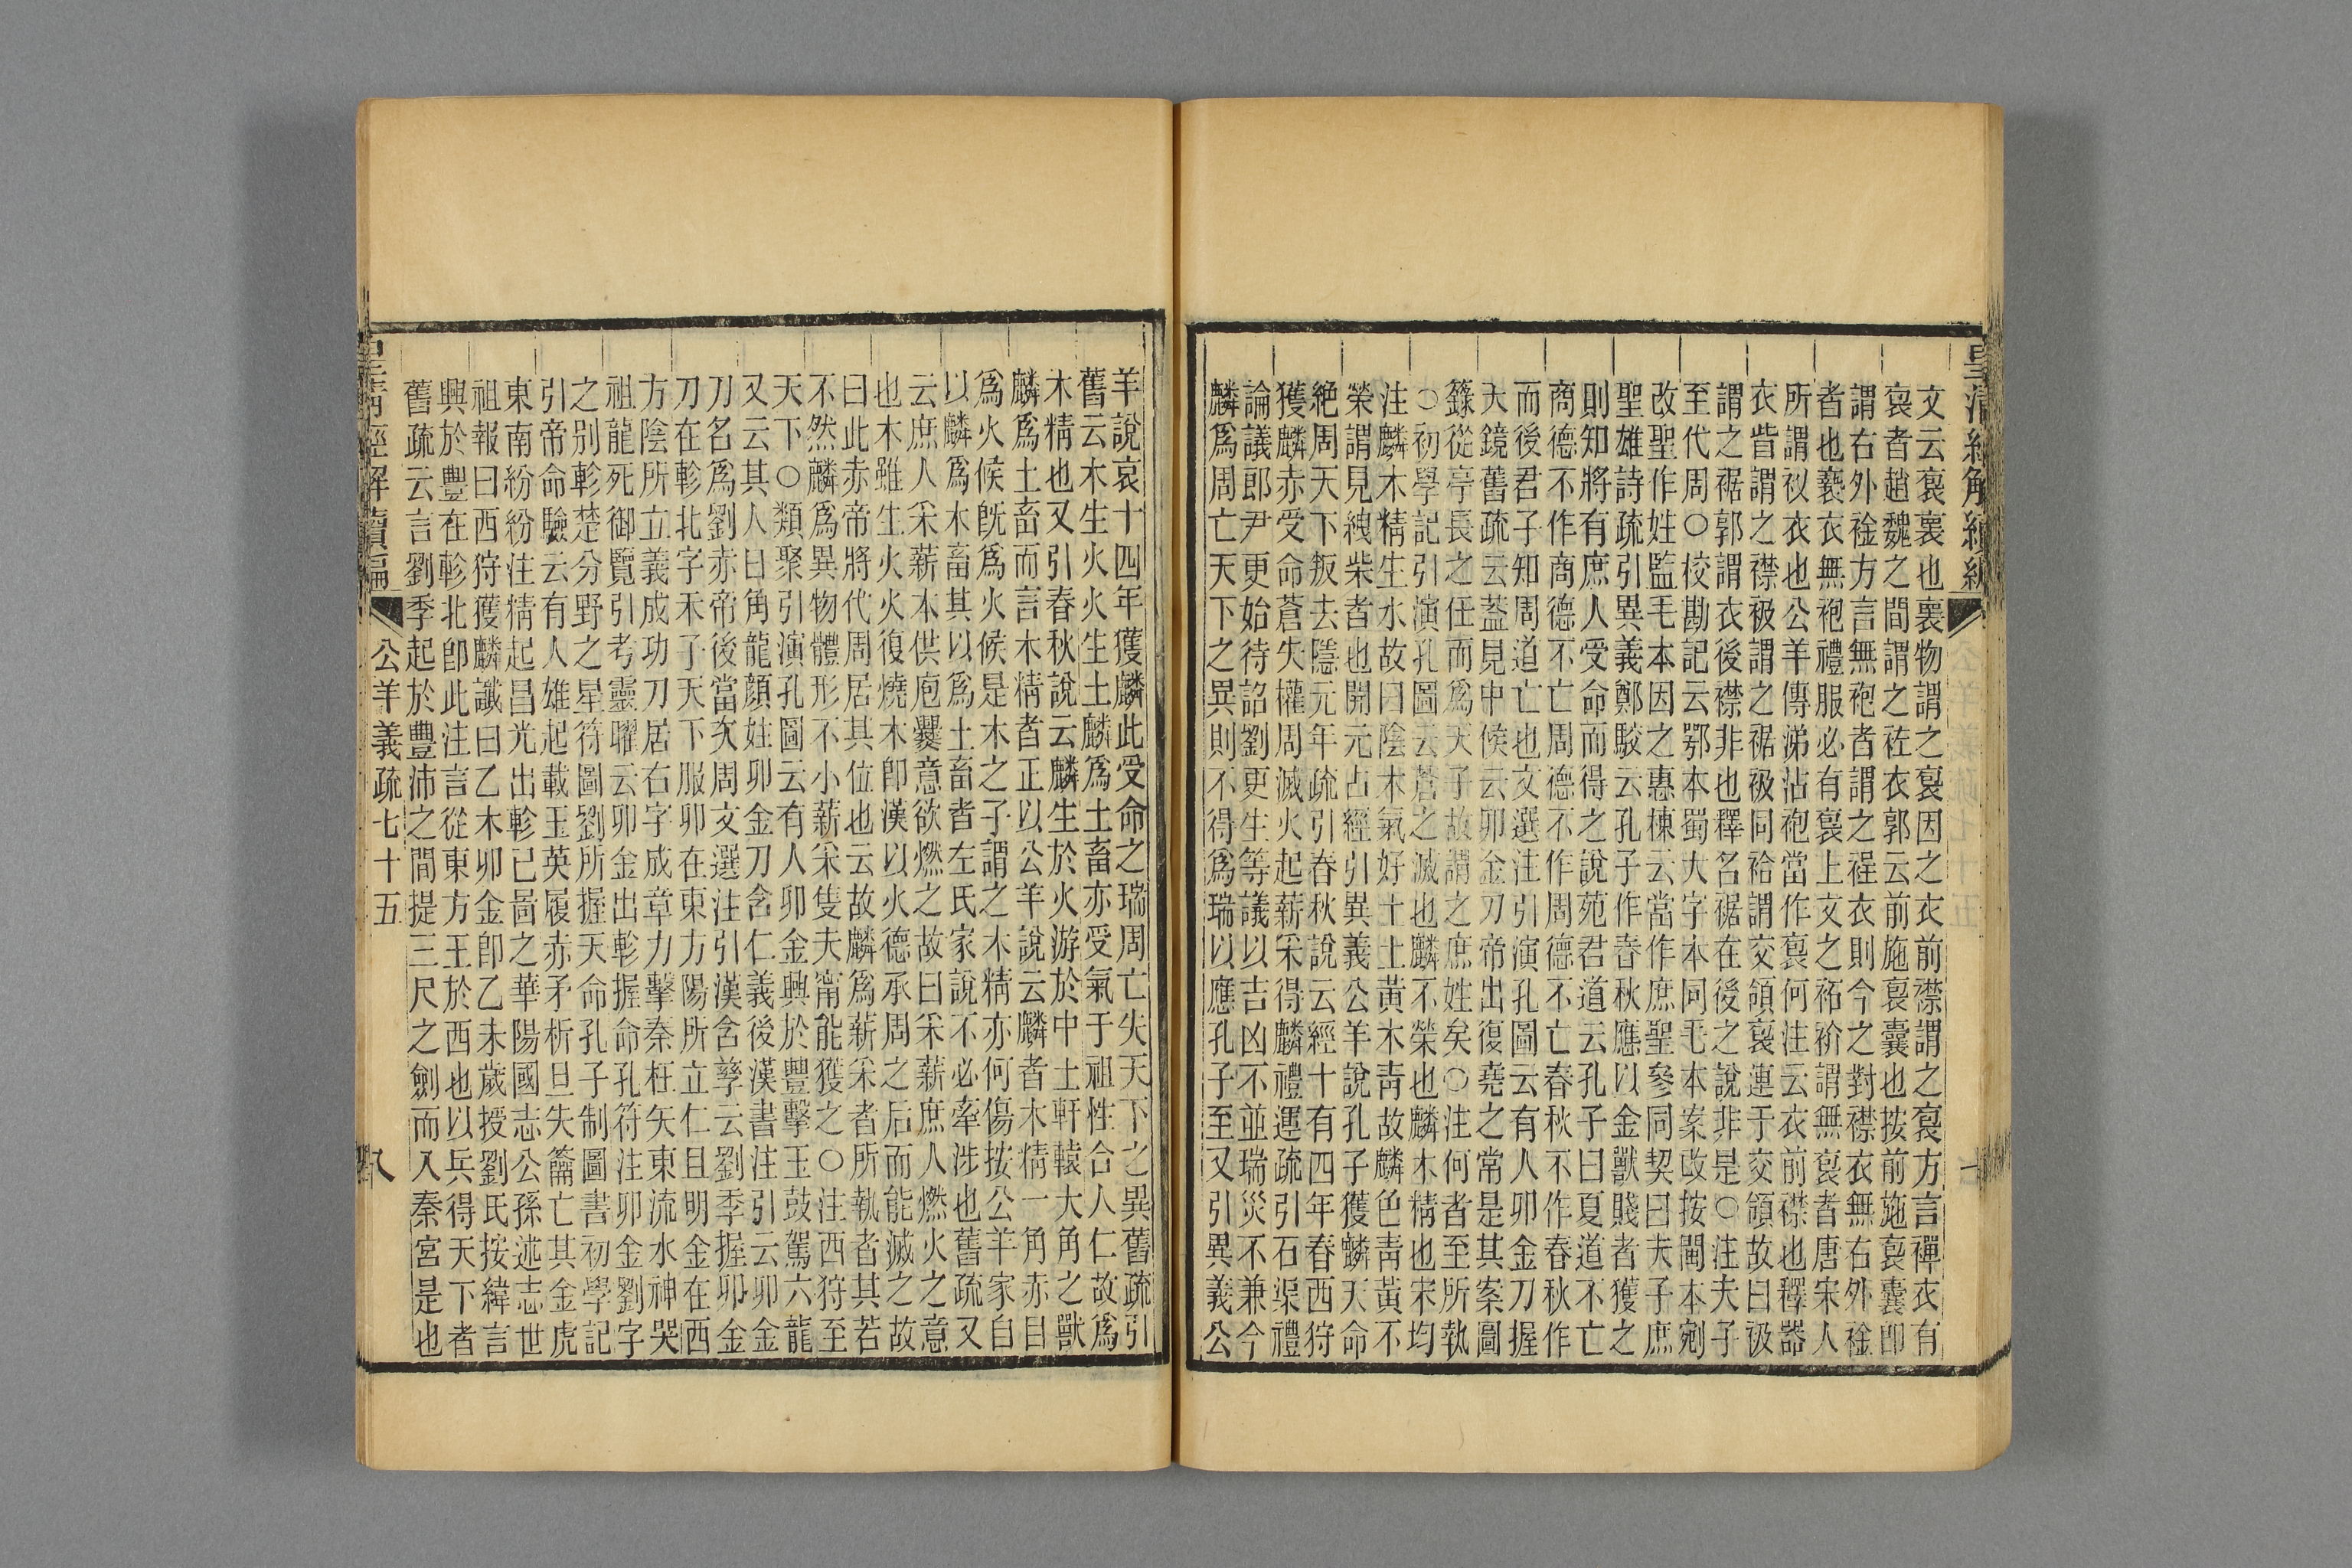 皇清經解續編
文云裒裏也裏物謂之裒因之衣前襟謂之裒方言禪衣有
裒者趙魏之間謂之袏衣郭云前施裒囊也按前施裒囊卽
謂右外袷方言無袍者謂之裎衣則今之對襟衣無右外袷
者也褻衣無袍禮服必有裒上文之袥衸謂無裒者唐宋人
所謂衩衣也公羊傳涕沾袍當作裒何注云衣前襟也釋器
衣眥謂之襟衱謂之裾衱同袷謂交領裒連于交領故曰衱
謂之裾郭謂衣後襟非也釋名裾在後之說非是○注夫子
至代周○校勘記云鄂本蜀大字本同毛本案改按閩本剜
改聖作姓監毛本因之惠棟云當作庶聖參同契曰夫子庶
聖雄詩疏引異義鄭駁云孔子作春秋應以金獸賤者獲之
則知將有庶人受命而得之說苑君道云孔子曰夏道不亡
商德不作商德不亡周德不作周德不亡春秋不作春秋作
而後君子知周道亡也文選注引演孔圖云有人卯金刀握
天鏡舊疏云蓋見中候云卯金刀帝出復堯之常是其案圖
籙從亭長之任而爲天子故謂之庶姓矣○注何者至所執
○初學記引演孔圖云蒼之滅也麟不榮也麟木精也宋均
注麟木精生水故曰陰木氣好土土黃木靑故麟色靑黃不
榮謂見絏柴者也開元占經引異義公羊說孔子獲麟天命
絶周天下叛去隱元年疏引春秋說云經十有四年春西狩
獲麟赤受命蒼失權周滅火起薪采得麟禮運疏引石渠禮
論議郎尹更始待詔劉更生等議以吉凶不並瑞災不兼今
麟爲周亡天下之異則不得爲瑞以應孔子至又引異義公
羊說哀十四年獲麟此受命之瑞周亡失天下之異舊疏引
舊云木生火火生土麟爲土畜亦受氣于祖性合人仁故爲
木精也又引春秋說云麟生於火游於中土軒轅大角之獸
麟爲土畜而言木精者正以公羊說云麟者木精一角赤目
爲火候旣爲火候是木之子謂之木精亦何傷按公羊家自
以麟爲木畜其以爲土畜者左氏家說不必牽涉也舊疏又
云庶人采薪本供庖爨意欲燃之故曰采薪庶人燃火之意
也木雖生火火復燒木卽漢以火德承周之后而能滅之故
曰此赤帝將代周居其位也云故麟爲薪采者所執者其若
不然麟爲異物體形不小薪采隻夫甯能獲之○注西狩至
天下○類聚引演孔圖云有人卯金興於豐擊玉鼓駕六龍
又云其人日角龍顏姓卯金刀含仁義後漢書注引云卯金
刀名爲劉赤帝後當次周文選注引漢含孳云劉季握卯金
刀在軫北字禾子天下服卯在東方陽所立仁且明金在西
方陰所立義成功刀居右字成章刀擊秦枉矢東流水神哭
祖龍死御覽引考靈曜云卯金出軫握命孔符注卯金劉字
之別軫楚分野之星符圖劉所握天命孔子制圖書初學記
引帝命驗云有人雄起載玉英履赤矛析旦失籥亡其金虎
東南紛紛注精起昌光出軫已圖之華陽國志公孫述志世
祖報曰西狩獲麟讖曰乙木卯金卽乙未歲授劉氏按緯言
興於豐在軫北卽此注言從東方王於西也以兵得天下者
舊疏云言劉季起於豐沛之間提三尺之劍而入秦宮是也
皇淸經解續編
公羊義疏七十五
八